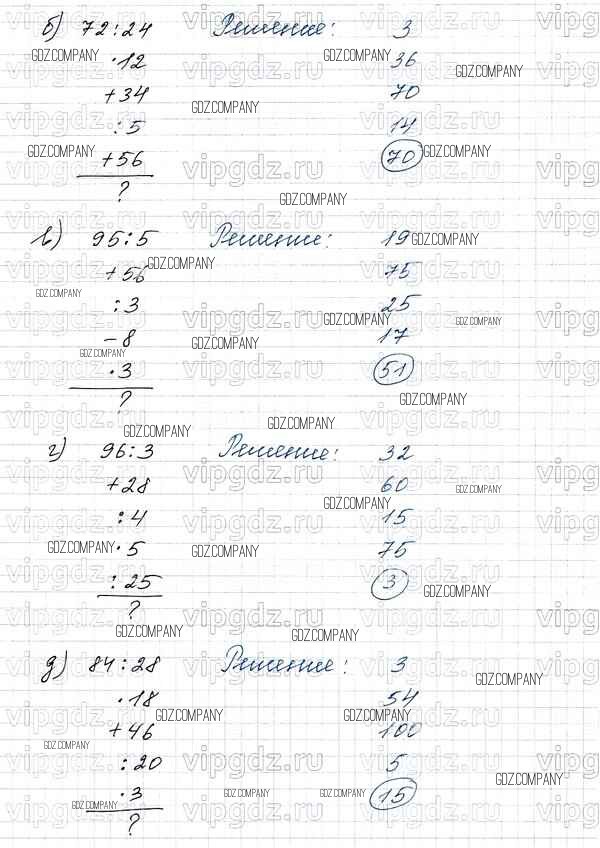 б) 72:24 Решение: 3
·12 36
+34 70
:5 14
+56 70
?
в) 95:5 Решение: 19
+56 75
:3 25
-8 17
·3 51
?
г) 96:3 Решение: 32
+28 60
:4 15
·5 75
:25 3
?
д) 84:28 Решение: 3
·18 54
+46 100
:20 5
·3 15
?
GDZ.COMPANY
vipgdz.ru